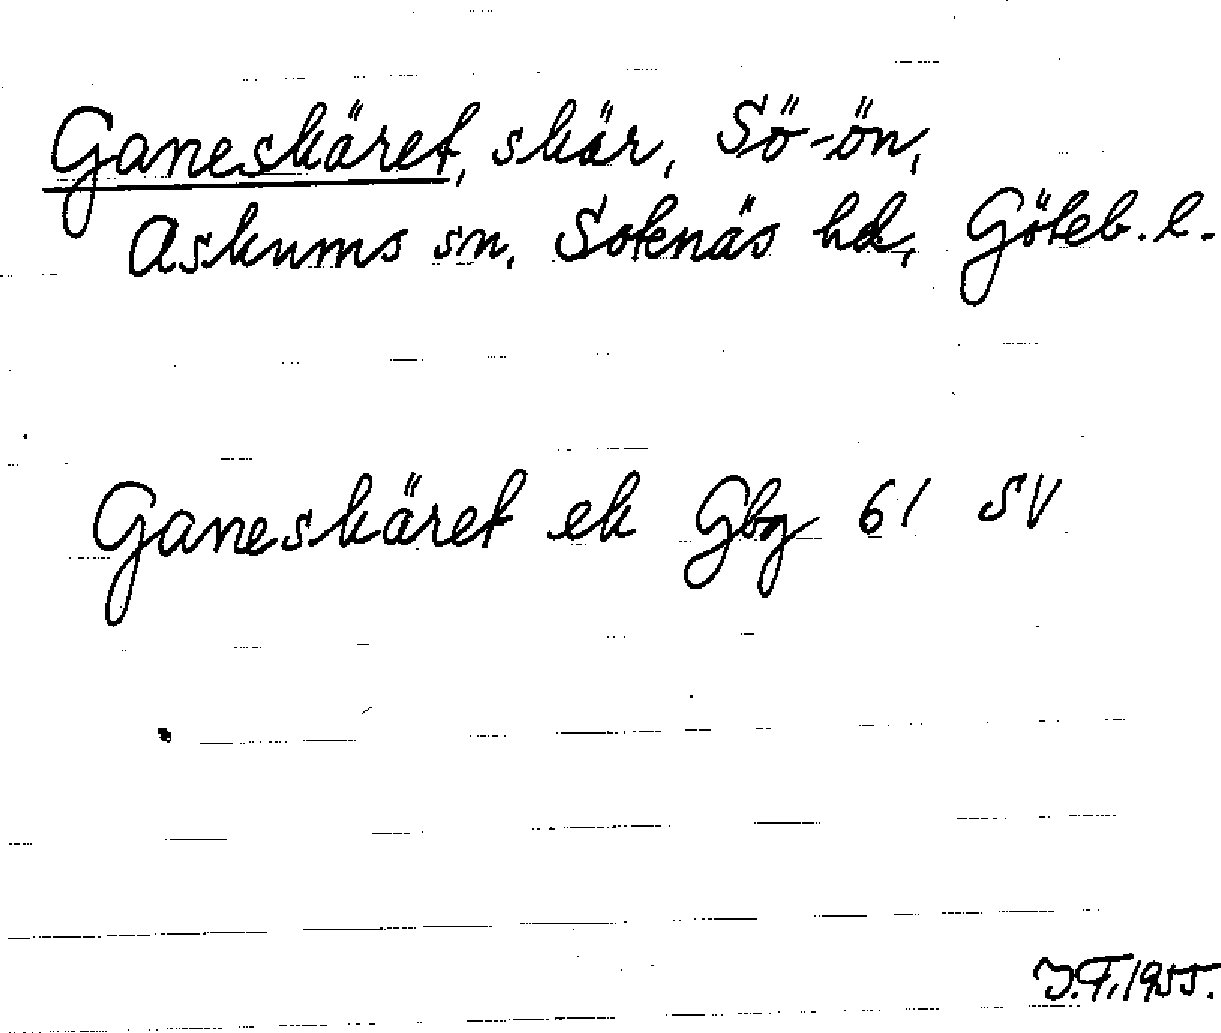 Ganeskäret, skär, Sö-ön,
Askums sn, Sotenäs hd, Göteb. l.
Ganeskäret ek Gbg 61 SV
J.F. 1955.